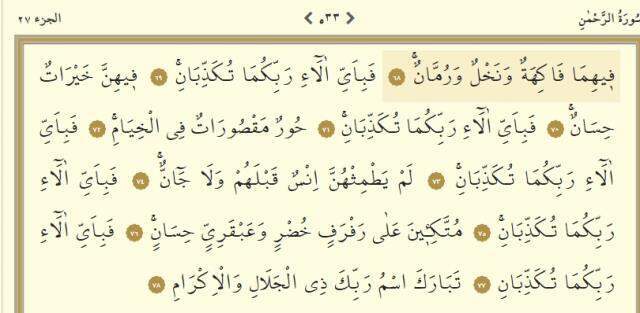 سُورَةُ الرَّحْمٰنِ ٥٣٣ الجزء ٢٧
فٖيهِمَا فَاكِهَةٌ وَنَخْلٌ وَرُمَّانٌۚ ﴿٦٨﴾ فَبِاَيِّ اٰلَٓاءِ رَبِّكُمَا تُكَذِّبَانِۚ ﴿٦٩﴾ فٖيهِنَّ خَيْرَاتٌ
حِسَانٌۚ ﴿٧٠﴾ فَبِاَيِّ اٰلَٓاءِ رَبِّكُمَا تُكَذِّبَانِۚ ﴿٧١﴾ حُورٌ مَقْصُورَاتٌ فِى الْخِيَامِۚ ﴿٧٢﴾ فَبِاَيِّ
اٰلَٓاءِ رَبِّكُمَا تُكَذِّبَانِۚ ﴿٧٣﴾ لَمْ يَطْمِثْهُنَّ اِنْسٌ قَبْلَهُمْ وَلَا جَٓانٌّۚ ﴿٧٤﴾ فَبِاَيِّ اٰلَٓاءِ
رَبِّكُمَا تُكَذِّبَانِۚ ﴿٧٥﴾ مُتَّكِـٖٔينَ عَلٰى رَفْرَفٍ خُضْرٍ وَعَبْقَرِيٍّ حِسَانٍۚ ﴿٧٦﴾ فَبِاَيِّ اٰلَٓاءِ
رَبِّكُمَا تُكَذِّبَانِ ﴿٧٧﴾ تَبَارَكَ اسْمُ رَبِّكَ ذِى الْجَلَالِ وَالْاِكْرَامِ ﴿٧٨﴾